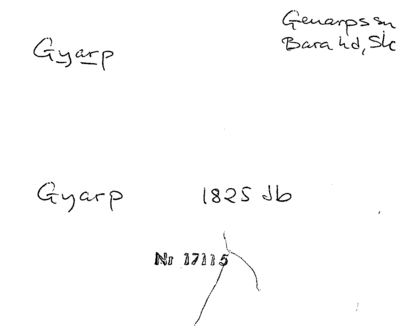 Genarps sn
Bara hd, Sk
Gyarp
Gyarp 1825 Jb
Nr 17115